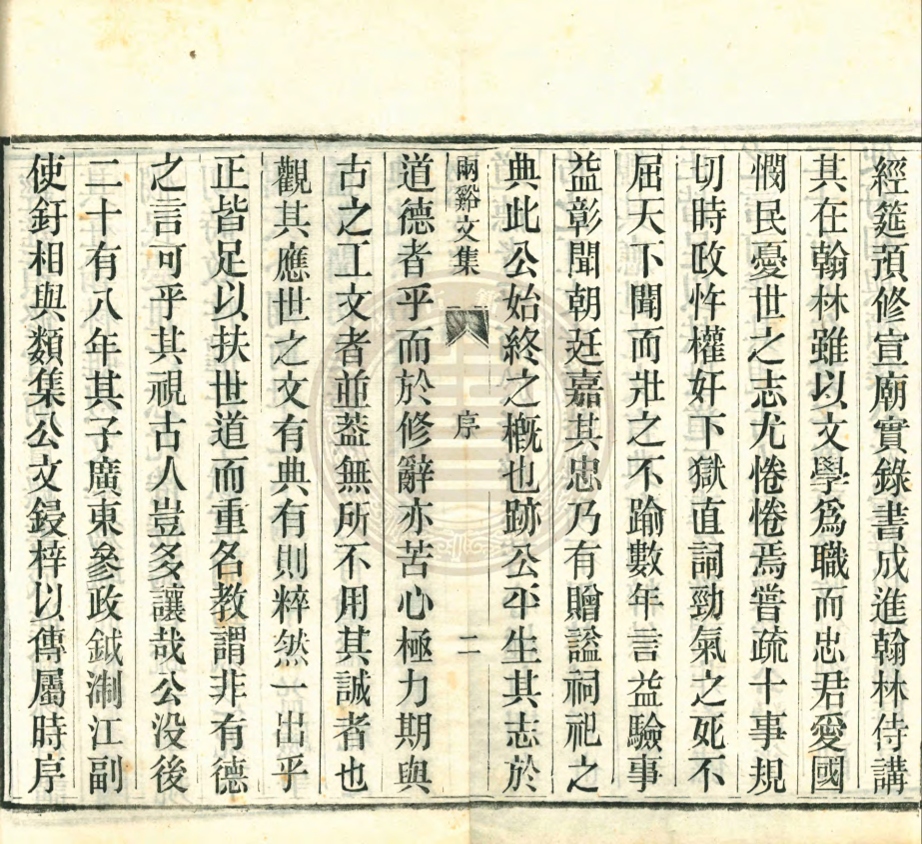 經筵預修宣廟實錄書成進翰林侍講
其在翰林雖以文學爲職而忠君愛國
憫民憂世之志尤惓惓焉嘗疏十事規
切時政忤權奸下獄直詞勁氣之死不
屈天下聞而壯之不踰數年言益驗事
益彰聞朝廷嘉其忠乃有贈謚祠祀之
典此公始終之槪也跡公平生其志於
兩谿文集 序 二
道德者乎而於修辭亦苦心極力期與
古之工文者並蓋無所不用其誠者也
觀其應世之文有典有則粹然一出乎
正皆足以扶世道而重名教謂非有德
之言可乎其視古人豈多讓哉公没後
二十有八年其子廣東參政鉞淛江副
使釪相與類集公文鋟梓以傳屬時序